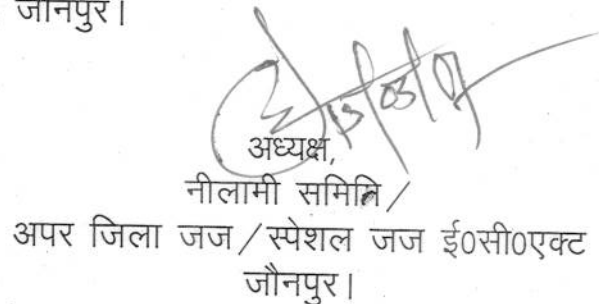 जौनपुर।
अध्यक्ष,
नीलामी समिति/
अपर जिला जज/स्पेशल जज ई०सी०एक्ट
जौनपुर।